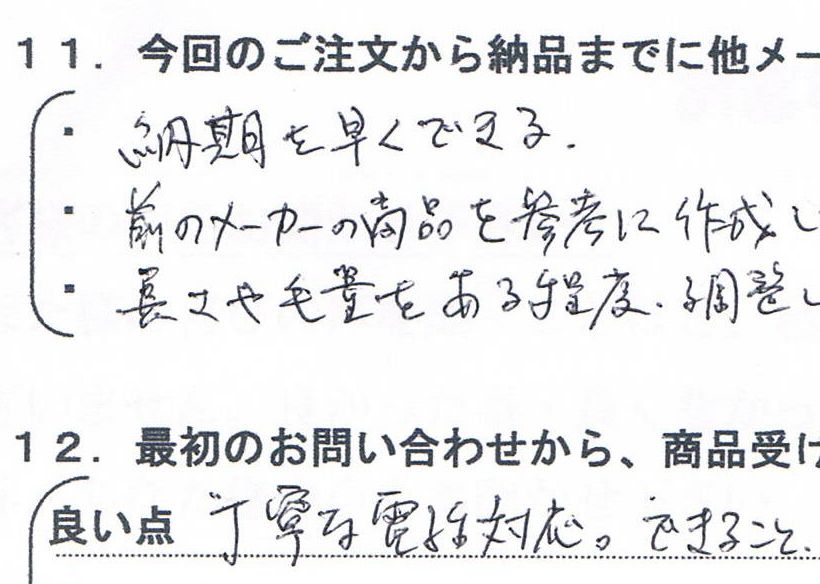 11. 今回のご注文から納品までに他メー
・ 納期を早くできる.
・ 前のメーカーの商品を参考に作成し
・ 長さや毛量をある程度.調整し
12. 最初のお問い合わせから、商品受け
良い点 丁寧な電話対応。できること.